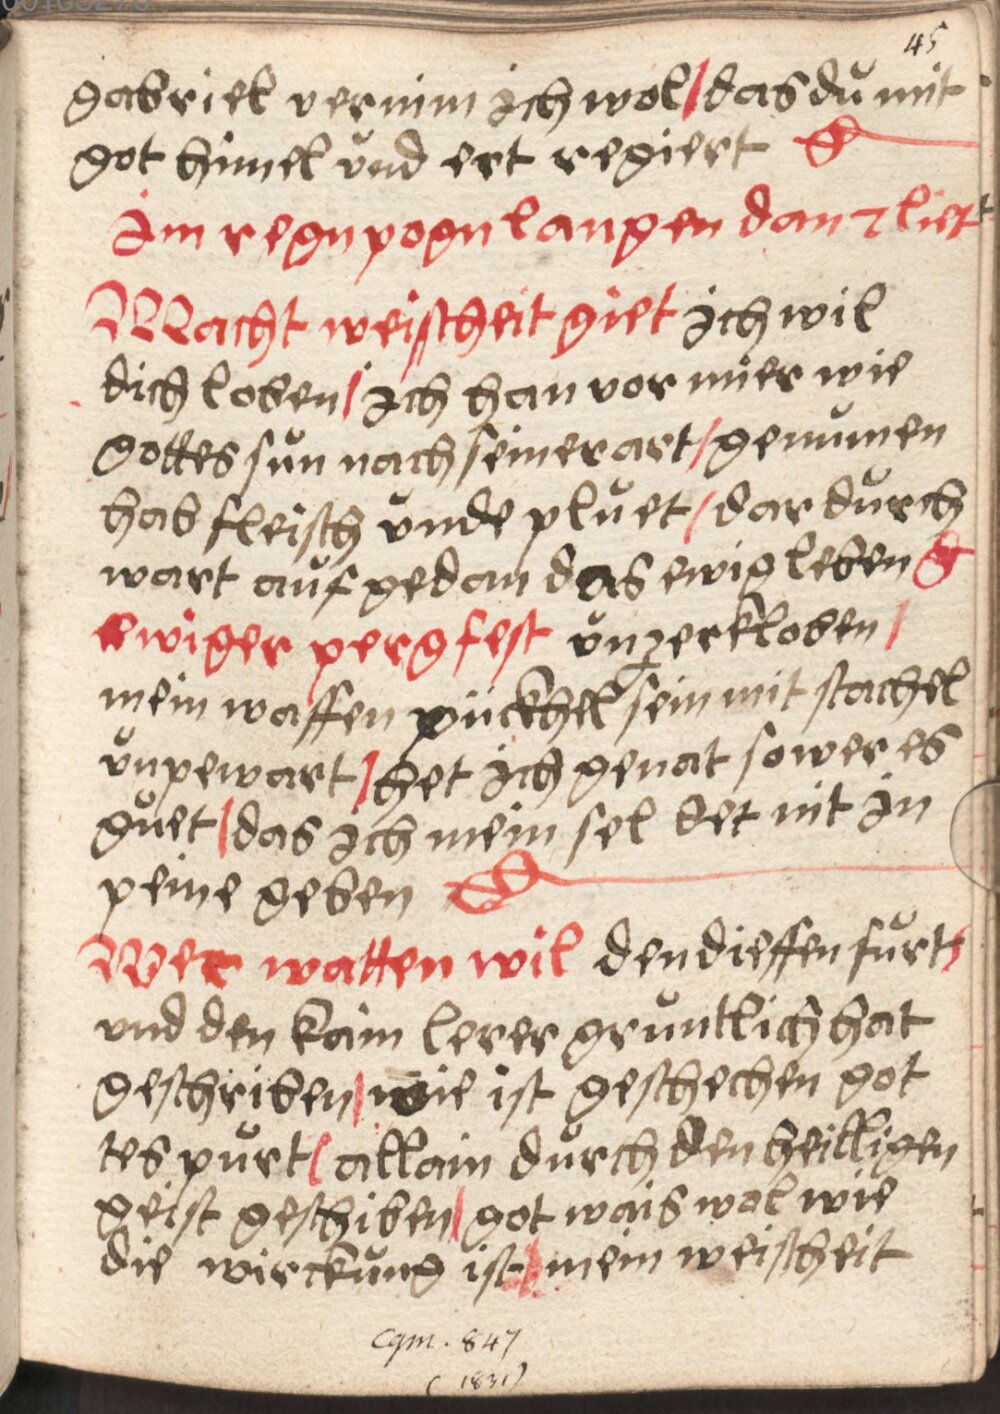 45
gabriel vernim ich wol / das dů mit
got himel vnd ert regiert
Im regnpogn langen dan 7 liet
Macht weischeit giet ich wil
dich loben / ich han vor mier wie
gottes sůn nach seiner art / genůmen
hab fleisch vnde plůet / dar důrch
wart aůf gedan das ewig leben
ewiger perg fest vnzerkloben /
mein waffen pückhel sein mit stachel
vnpewart / het ich genat so wer es
gůet / das ich mein sel det nit in
peine geben
Wer watten wil den dieffen fůrt /
vnd den kain lerer grůntlich hat
geschriben / wie ist geschechen got
tes půrt / allain důrch den heilligen
geist geschiben / got wais wol wie
die wirckůng ist / mein weischeit
cgm. 847
(1831)